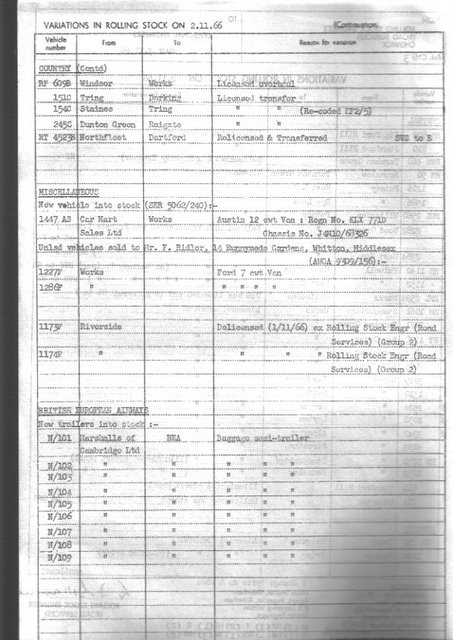 VARIATIONS IN ROLLING STOCK ON 2.11.66 (Continuation)
Vehicle number From To Reason for variation
COUNTRY (Contd)
RF 609B Windsor Works Licensed overhaul
151C Tring Dorking Licensed transfer
154C Staines Tring " " (Re-coded RF2/5)
245C Dunton Green Reigate " "
RT 4523B Northfleet Dartford Relicensed & Transferred SVS to E
MISCELLANEOUS
New vehicle into stock (SER 5062/240):-
1447 AS Car Mart Works Austin 12 cwt Van : Regn No. KLX 771D
Sales Ltd Chassis No. J4M10/63326
Unlsd vehicles sold to Mr. F. Ridler, 14 Runnymede Gardens, Whitton, Middlesex
(AWCA 9309/156):-
1227F Works Ford 7 cwt Van
1286F " " " " "
1173F Riverside Delicensed (1/11/66) ex Rolling Stock Engr (Road
Services) (Group 2)
1174F " " " " Rolling Stock Engr (Road
Services) (Group 2)
BRITISH EUROPEAN AIRWAYS
New trailers into stock :-
N/101 Marshalls of BEA Baggage semi-trailer
Cambridge Ltd
N/102 " " " " "
N/103 " " " " "
N/104 " " " " "
N/105 " " " " "
N/106 " " " " "
N/107 " " " " "
N/108 " " " " "
N/109 " " " " "